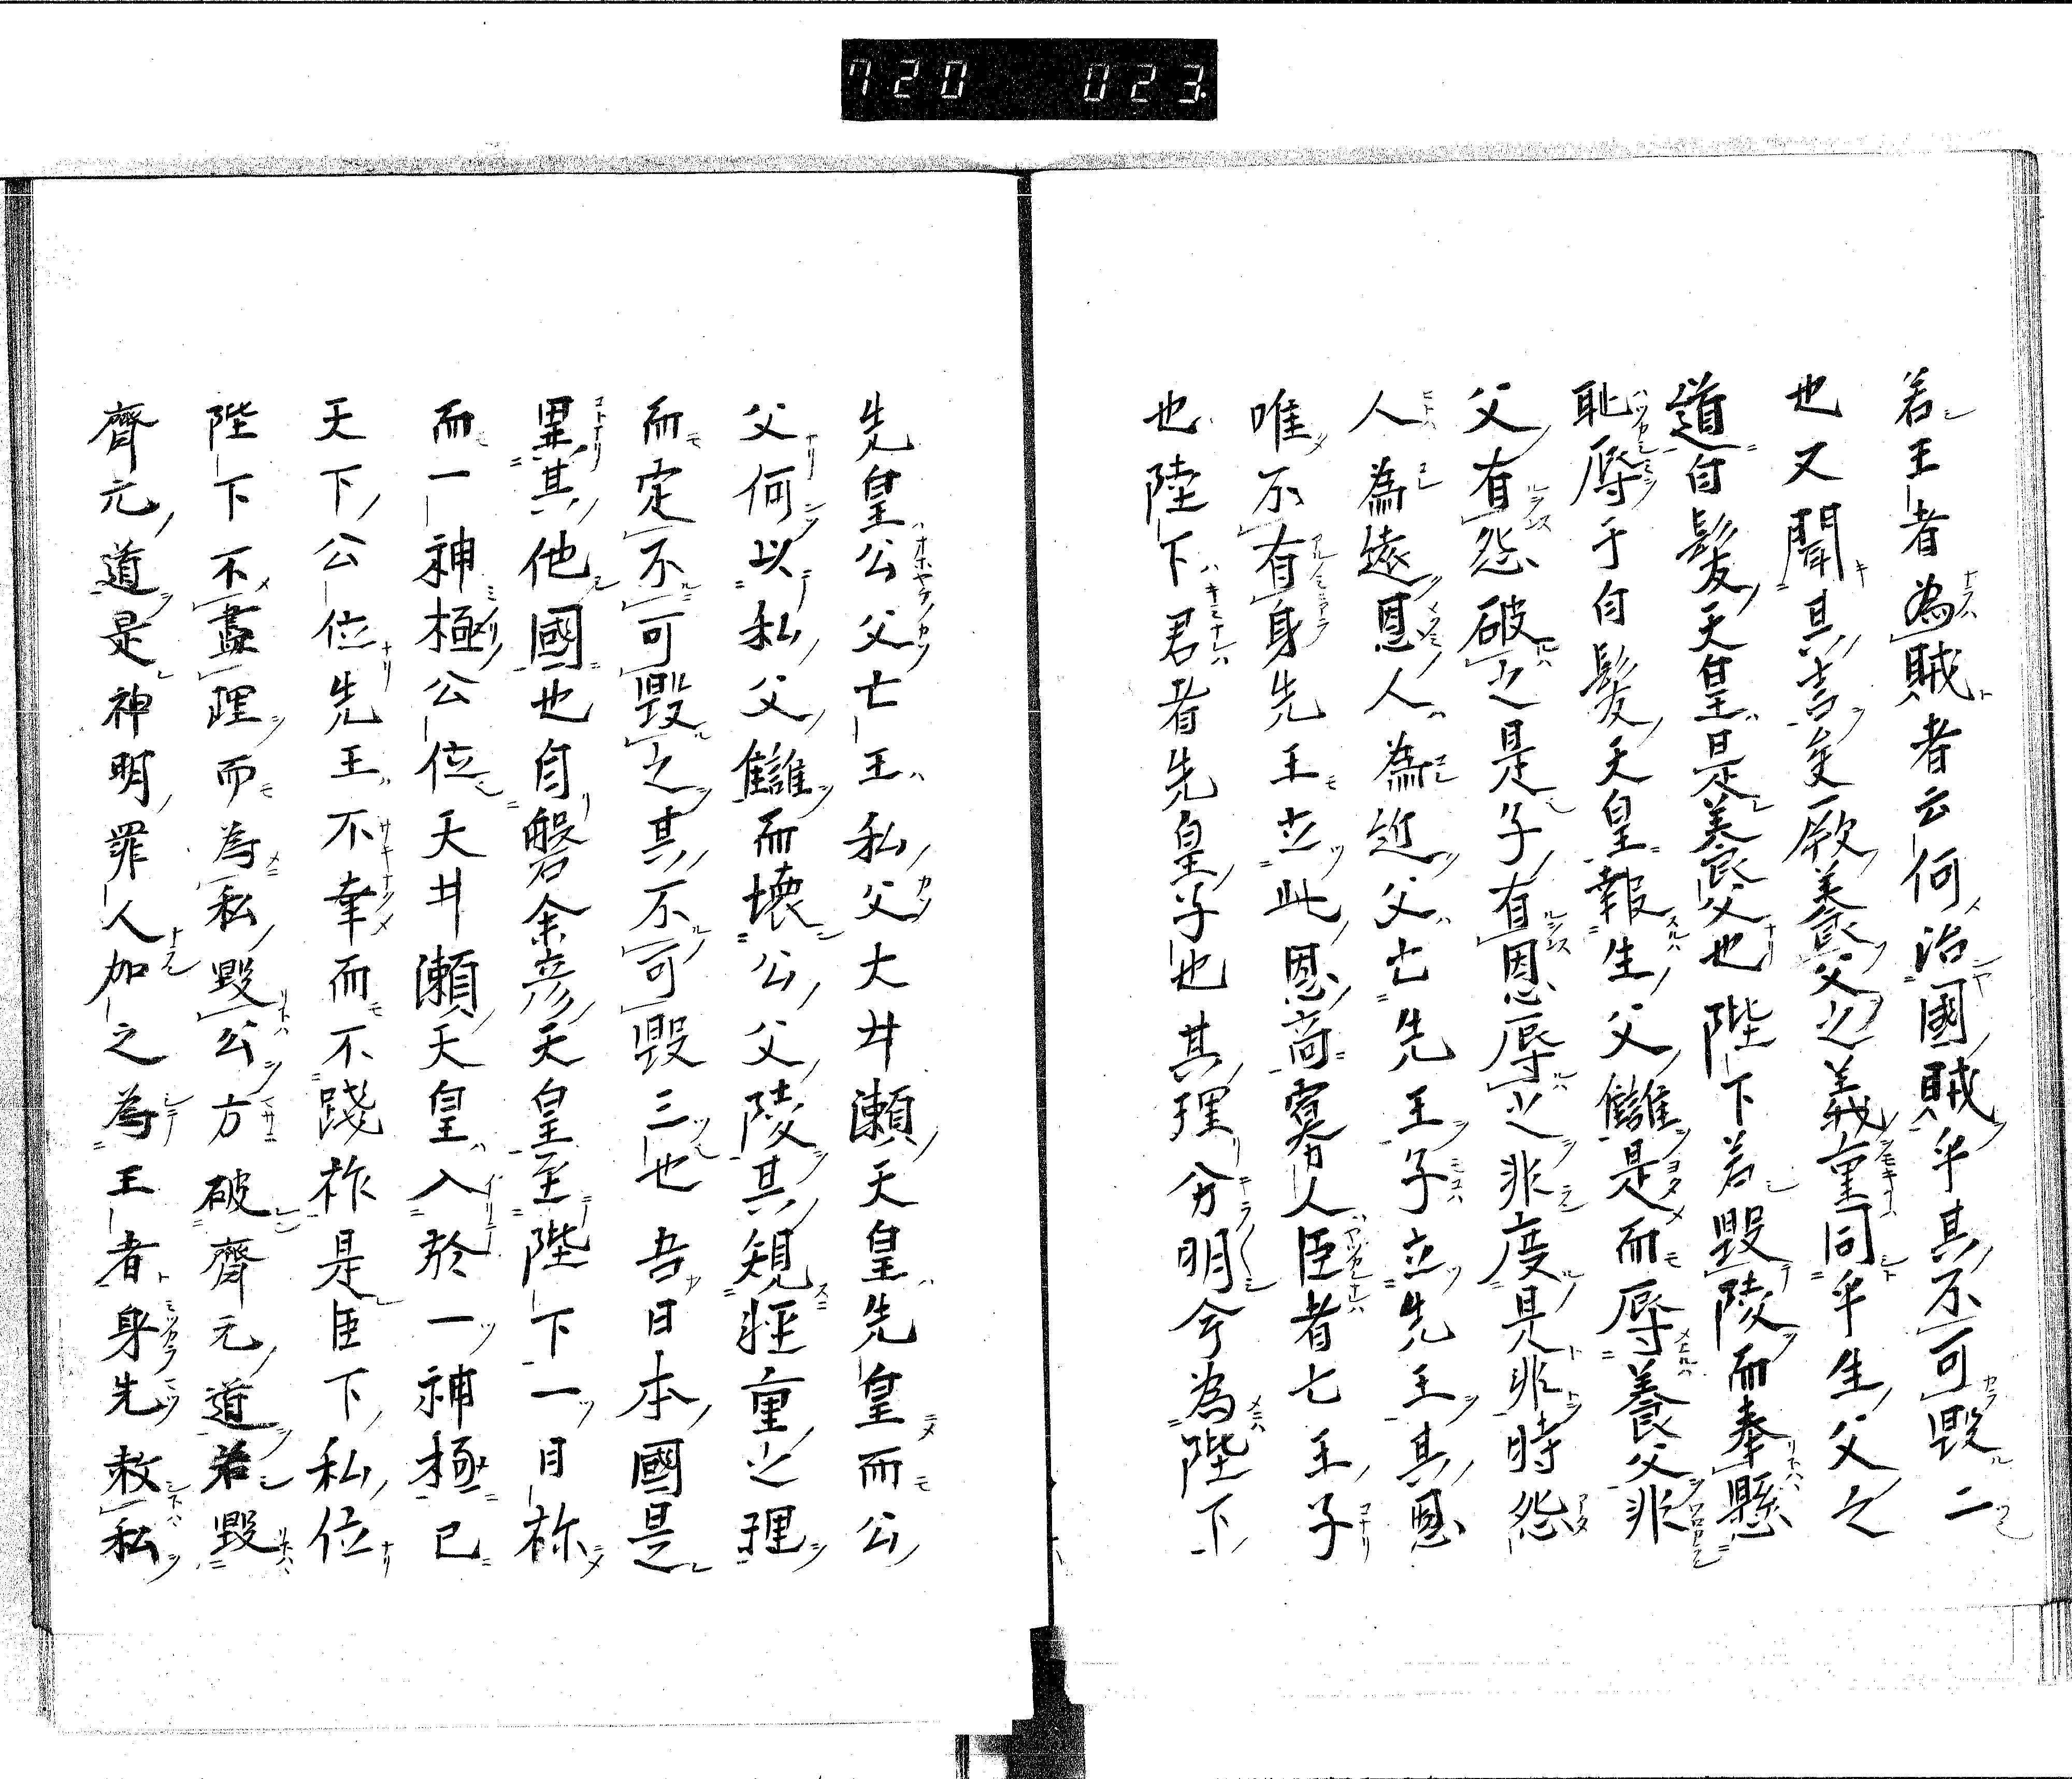 720 023
若王者為賊者云何治國賊乎其不可毀二
也又聞其言矣厥養父之義重同乎生父之
道白髮天皇是養父也陛下若毀陵而奉懸
恥辱于白髮天皇報生父讎是而辱養父非
父有怨破之是子有恩辱之非度是非時怨
人為遠恩人為近父亡先王子立先王其恩
唯不有身先王立此恩啇寡人臣者七王子
也陸下君者先皇子也其理分明今為陛下
先皇公父亡王私父大井瀬天皇先皇而公
父何以私父讎而壊公父陵其規軽重之理
而定不可毀之其不可毀三也吾日本國是
異其他國也自磐余彦天皇至陛下一日祢
而一神極公位天井瀬天皇入於一神極已
天下公位先王不幸而不踐祚是臣下私位
陛下不盡理而為私毀公方破齊元道若毀
齊元道是神明罪人加之為王者身先敕私